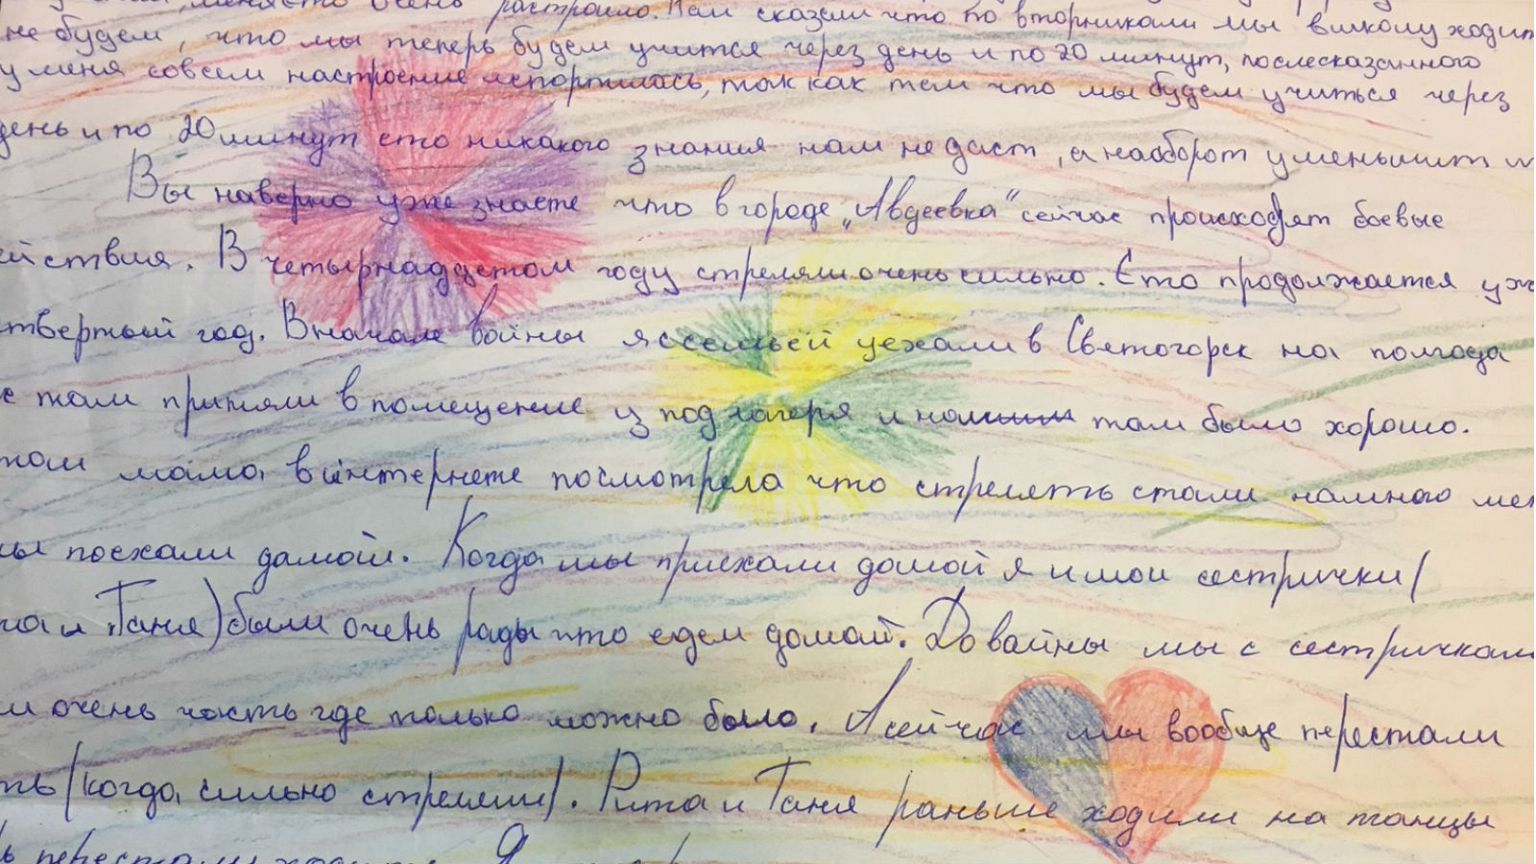 меня это очень растроило. Нам сказали что по вторникам мы вшколу ходит
не будем, что мы теперь будем учится через день и по 20 минут, послесказанного
у меня совсем настроение испортилась, так как тем что мы будем учиться через
день и по 20 минут ето никакого знания нам не даст, а наоборот уменьшит
Вы наверно уже знаете что в городе „Авдеевка" сейчас происходят боевые
ействия. В четырнаддетом году стреляли очень сильно. Ето продолжается уж
твертый год. Вначале войны я ссемьёй уехали в Святогорск на полгода
с там приняли в помещение из под лагеря и нам там было хорошо.
том мама в интернете посмотрела что стрелять стали намного мен
мы поехали дамой. Когда мы приехали домой я и мои сестрички (
та и Таня) были очень рады что едем домой. До войны мы с сестричкам
и очень часть где только можно было. А сейчас мы вообще перестали
ть (когда, сильно стреляли). Рита и Таня раньше ходили на танцы
перестали